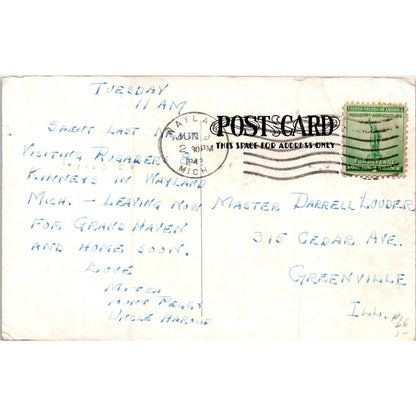 TUESDAY
11 AM
SPENT LAST N
VISITING
KINNEYS IN WAYLAND
MICH. - LEAVING NOW
FOR GRAND HAVEN
AND HOME SOON.
LOVE
MITZI
AUNT PEGGY
UNCLE HAROLD
WAYLA
JUN
2 30PM
194
MICH.
POST CARD
THIS SPACE FOR ADDRESS ONLY
UNITED STATES OF AMERICA
INDUSTRY AGRICULTURE
FOR DEFENSE
MASTER DARRELL LOUDER
315 CEDAR AVE.
GREENVILLE
ILL.